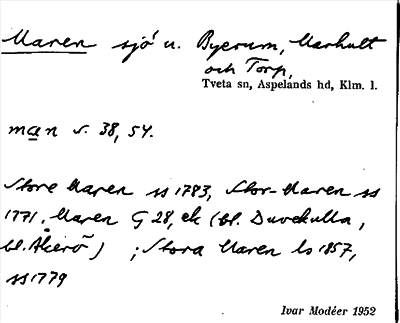 Maren sjö u. Byerum, Marhult
och Torp,
Tveta sn, Aspelands hd, Klm. l.
man s. 38, 54.
Store Maren ss 1783, Stor-Maren ss
1771. Maren G 28, ek (bl. Duvekulla,
bl. Åkerö) ; Stora Maren ls 1857,
ss 1779
Ivar Modéer 1952